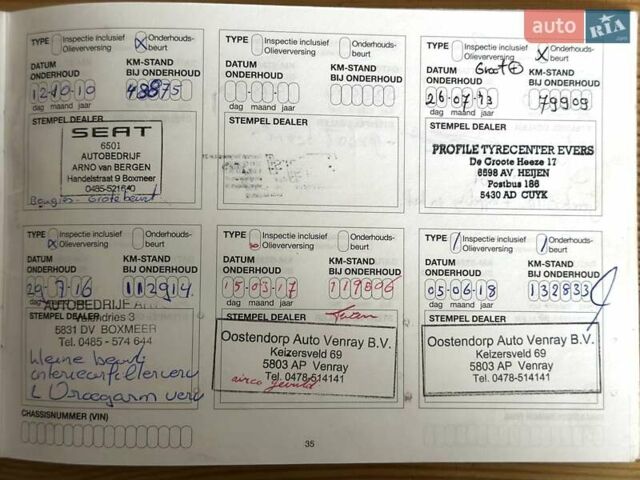 auto RIA
TYPE Inspectie inclusief Olieverversing X Onderhouds-beurt
DATUM ONDERHOUD KM-STAND BIJ ONDERHOUD
12-10-10 48875
dag maand jaar
STEMPEL DEALER
SEAT
6501
AUTOBEDRIJF
ARNO van BERGEN
Handelstraat 9 Boxmeer
0485-521640
Bougies - Grote beurt
TYPE Inspectie inclusief Olieverversing Onderhouds-beurt
DATUM ONDERHOUD KM-STAND BIJ ONDERHOUD
dag maand jaar
STEMPEL DEALER
TYPE Inspectie inclusief Olieverversing X Onderhouds-beurt
Groot
DATUM ONDERHOUD KM-STAND BIJ ONDERHOUD
26 07 13 79909
dag maand jaar
STEMPEL DEALER
PROFILE TYRECENTER EVERS
De Groote Heeze 17
6598 AV HEIJEN
Postbus 186
5430 AD CUYK
TYPE X Inspectie inclusief Olieverversing Onderhouds-beurt
DATUM ONDERHOUD KM-STAND BIJ ONDERHOUD
29-7-16 112914
dag maand jaar
AUTOBEDRIJF
STEMPEL DEALER
3
5831 DV BOXMEER
Tel. 0485 - 574 644
kleine beurt
interieurfilter verv
TYPE Inspectie inclusief Olieverversing Onderhouds-beurt
DATUM ONDERHOUD KM-STAND BIJ ONDERHOUD
15-03-17 119306
dag maand jaar
STEMPEL DEALER
Oostendorp Auto Venray B.V.
Keizersveld 69
5803 AP Venray
Tel. 0478-514141
airco gevuld
TYPE / Inspectie inclusief Olieverversing / Onderhouds-beurt
DATUM ONDERHOUD KM-STAND BIJ ONDERHOUD
05-06-18 132833
dag maand jaar
STEMPEL DEALER
Oostendorp Auto Venray B.V.
Keizersveld 69
5803 AP Venray
Tel. 0478-514141
CHASSISNUMMER (VIN)
35